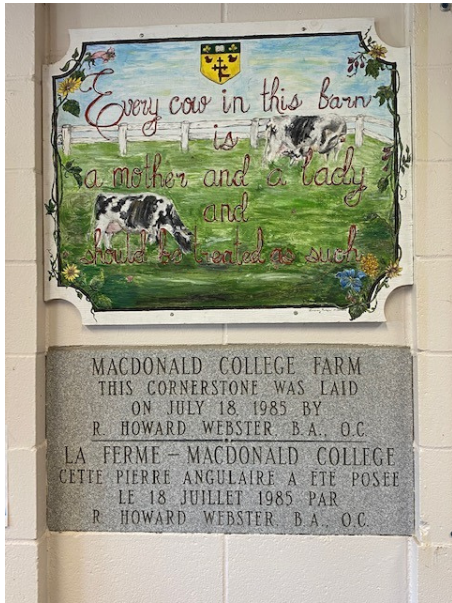 Every cow in this barn
is
a mother and a lady
and
should be treated as such
MACDONALD COLLEGE FARM
THIS CORNERSTONE WAS LAID
ON JULY 18, 1985 BY
R. HOWARD WEBSTER, B.A., O.C.
LA FERME – MACDONALD COLLEGE
CETTE PIERRE ANGULAIRE A ÉTÉ POSÉE
LE 18 JUILLET 1985 PAR
R. HOWARD WEBSTER, B.A., O.C.